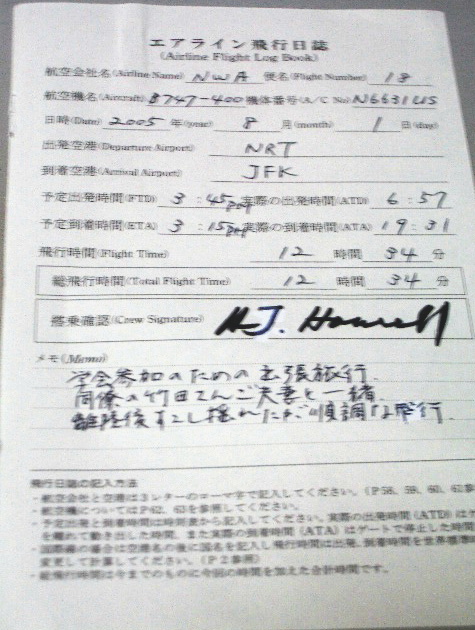 エアライン飛行日誌
(Airline Flight Log Book)
航空会社名(Airline Name) NWA 便名(Flight Number) 18
航空機名(Aircraft) B747-400 機体番号(A/C No) N6631US
日時(Date) 2005 年(year) 8 月(month) 1 日(day)
出発空港(Departure Airport) NRT
到着空港(Arrival Airport) JFK
予定出発時間(ETD) 3:45pm 実際の出発時間(ATD) 6:57
予定到着時間(ETA) 3:15pm 実際の到着時間(ATA) 19:31
飛行時間(Flight Time) 12 時間 34 分
総飛行時間(Total Flight Time) 12 時間 34 分
搭乗確認(Crew Signature) J. Howell
メモ(Memo)
学会参加のための出張旅行.
同僚の竹田さんご夫妻と一緒.
離陸後すこし揺れたが順調な飛行.
飛行日誌の記入方法
・航空会社と空港は3レターのローマ字で記入してください。(P58、59、60、62参
・航空機についてはP62、63を参照してください。
・予定出発と到着時間は時刻表から記入してください。実際の出発時間(ATD)はゲ
を離れて動き出した時間、また実際の到着時間(ATA)はゲートで停止した時間
・国際線の場合は空港名の後に国名を記入し飛行時間は出発、到着時間を世界標準
変更して計算してください。(P2参照)
・総飛行時間は今までのものに今回の時間を加えた合計時間です。